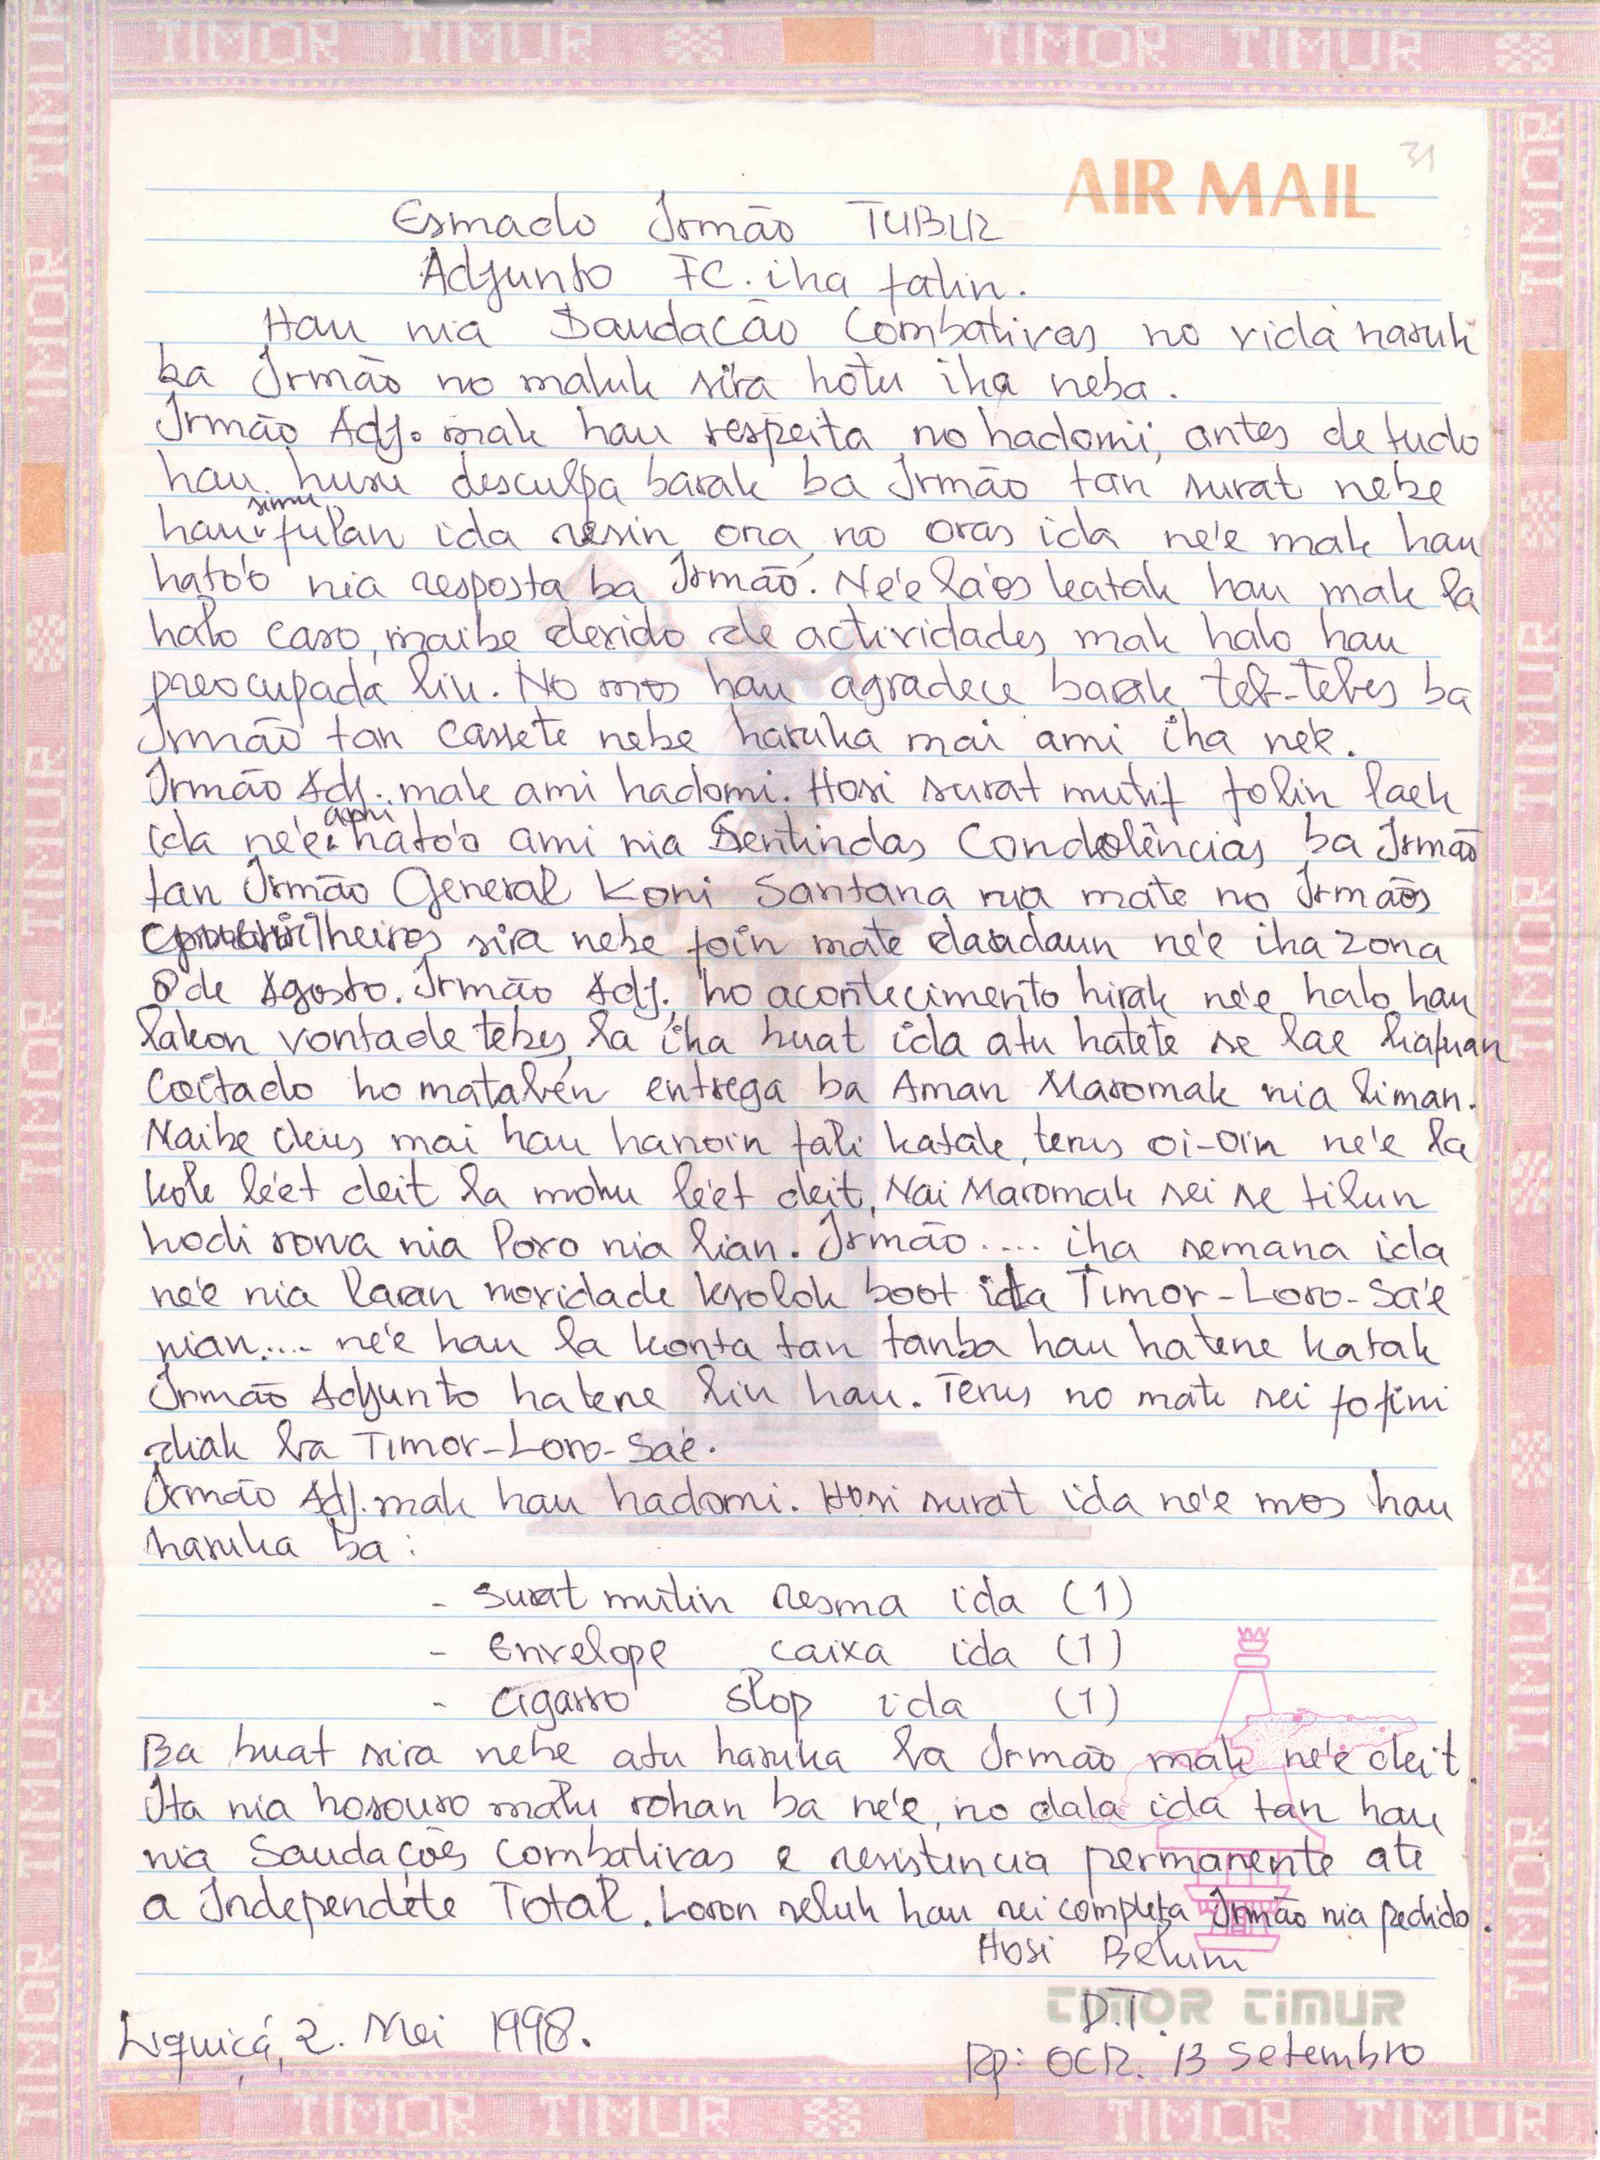 TIMOR TIMUR TIMOR TIMUR
AIR MAIL
31
Esmado Irmão TUBUR
Adjunto FC. iha fatin.
Hau nia Saudacão Combativas no vida naruk
ba Irmão no maluk sira hotu iha neba.
Irmão Adj. mak hau respeita no hadomi, antes de tudo
hau husu desculpa barak ba Irmão tan surat nebe
hau simu fulan ida resin ona, no oras ida ne'e mak hau
hato'o nia resposta ba Irmão. Ne'e la'os katak hau mak la
halo caso, maibe devido de actividades mak halo hau
preocupada liu. No mos hau agradece barak teb-tebes ba
Irmão tan cassete nebe haruka mai ami iha ne'e.
Irmão Adj. mak ami hadomi. Hosi surat mutif folin laek
ida ne'e ami hato'o ami nia Sentindas Condolências ba Irmão
tan Irmão General Koni Santana nia mate no Irmãos
sira nebe foin mate daudaun ne'e iha zona
8 de Agosto. Irmão Adj. ho acontecimento hirak ne'e halo hau
lakon vontade tebes, la iha buat ida atu hatete se lae liafuan
Coitado ho matabén entrega ba Aman Maromak nia liman.
Maibe deus mai hau hanoin fali katak, terus oi-oin ne'e la
kole le'et deit la mohu le'et deit, Nai Maromak sei se tilun
hodi rona nia Povo nia lian. Irmão.... iha semana ida
ne'e nia laran novidade krolok boot ida Timor-Loro-Sa'e
nian.... ne'e hau la konta tan tanba hau hatene katak
Irmão Adjunto hatene liu hau. Terus no mate sei fo fini
diak ba Timor-Loro-Sa'e.
Irmão Adj. mak hau hadomi. Hosi surat ida ne'e mos hau
haruka ba:
- Surat mutin resma ida (1)
- Envelope caixa ida (1)
- Cigarro Slop ida (1)
Ba buat sira nebe atu haruka ba Irmão mak ne'e deit.
Ita nia hosouro malu rohan ba ne'e, no dala ida tan hau
nia Saudações Combativas e resistencia permanente ate
a Independéte Total. Loron seluk hau sei completa Irmão nia pedido.
Hosi Belum
TIMOR TIMUR
D.T.
Liquiçá, 2. Mei 1998.
Rp: OCR. 13 Setembro
TIMOR TIMUR TIMOR TIMUR